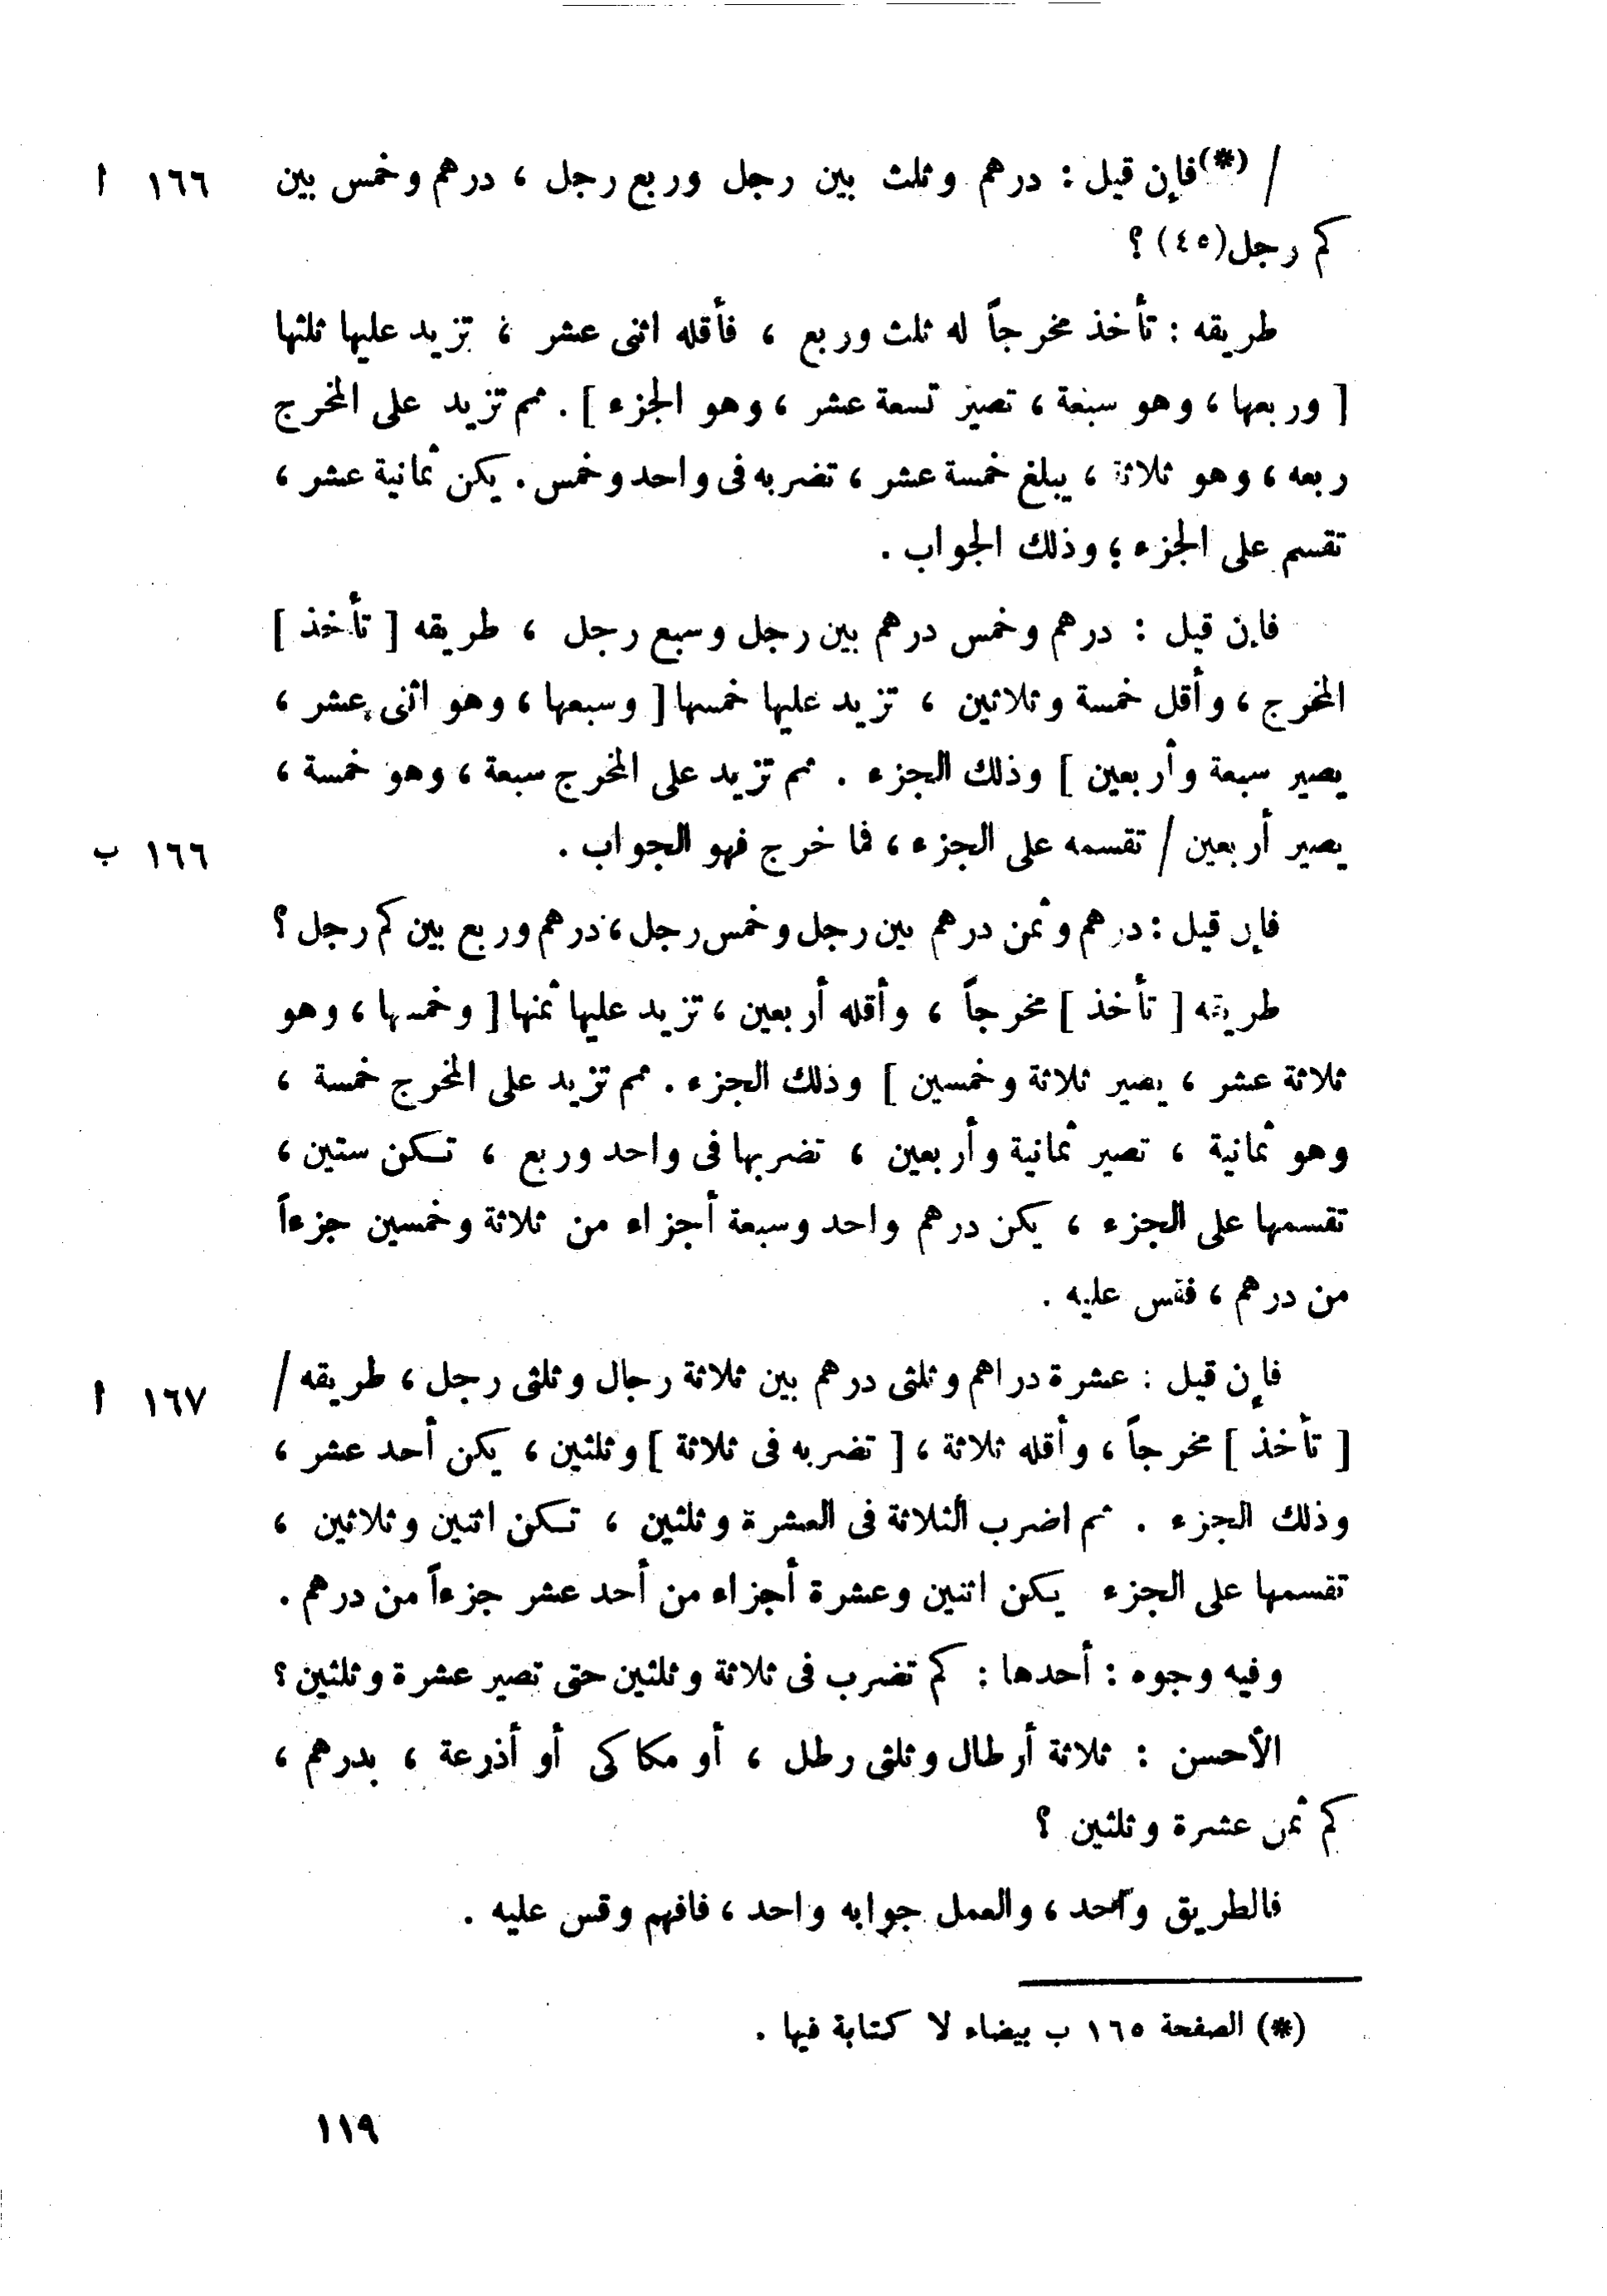 / (*) فإن قيل : درهم وثلث بين رجل وربع رجل ، درهم وخمس بين ١٦٦ ا
كم رجل(٤٥) ؟
طريقه : تأخذ مخرجاً له ثلث وربع ، فأقله اثنى عشر ، تزيد عليها ثلثها
[ وربعها ، وهو سبعة ، تصير تسعة عشر ، وهو الجزء ] . ثم تزيد على المخرج
ربعه ، وهو ثلاثة ، يبلغ خمسة عشر ، تضربه فى واحد وخمس . يكن ثمانية عشر ،
تقسم على الجزء ؛ وذلك الجواب .
فإن قيل : درهم وخمس درهم بين رجل وسبع رجل ، طريقه [ تأخذ ]
المخرج ، وأقل خمسة وثلاثين ، تزيد عليها خمسها [ وسبعها ، وهو اثنى عشر ،
يصير سبعة وأربعين ] وذلك الجزء . ثم تزيد على المخرج سبعة ، وهو خمسة ،
يصير أربعين / تقسمه على الجزء ، فما خرج فهو الجواب . ١٦٦ ب
فإن قيل : درهم وثمن درهم بين رجل وخمس رجل ، درهم وربع بين كم رجل ؟
طريقه [ تأخذ ] مخرجاً ، وأقله أربعين ، تزيد عليها ثمنها [ وخمسها ، وهو
ثلاثة عشر ، يصير ثلاثة وخمسين ] وذلك الجزء . ثم تزيد على المخرج خمسة ،
وهو ثمانية ، تصير ثمانية وأربعين ، تضربها فى واحد وربع ، تكن ستين ،
تقسمها على الجزء ، يكن درهم واحد وسبعة أجزاء من ثلاثة وخمسين جزءاً
من درهم ، فقس عليه .
فإن قيل : عشرة دراهم وثلثى درهم بين ثلاثة رجال وثلثى رجل ، طريقه / ١٦٧ ا
[ تأخذ ] مخرجاً ، وأقله ثلاثة ، [ تضربه فى ثلاثة ] وثلثين ، يكن أحد عشر ،
وذلك الجزء . ثم اضرب الثلاثة فى العشرة وثلثين ، تكن اثنين وثلاثين ،
تقسمها على الجزء يكن اثنين وعشرة أجزاء من أحد عشر جزءاً من درهم .
وفيه وجوه : أحدها : كم تضرب فى ثلاثة وثلثين حتى تصير عشرة وثلثين ؟
الأحسن : ثلاثة أرطال وثلثى رطل ، أو مكاكى أو أذرعة ، بدرهم ،
كم ثمن عشرة وثلثين ؟
فالطريق واحد ، والعمل جوابه واحد ، فافهم وقس عليه .
(*) الصفحة ١٦٥ ب بيضاء لا كتابة فيها .
١١٩